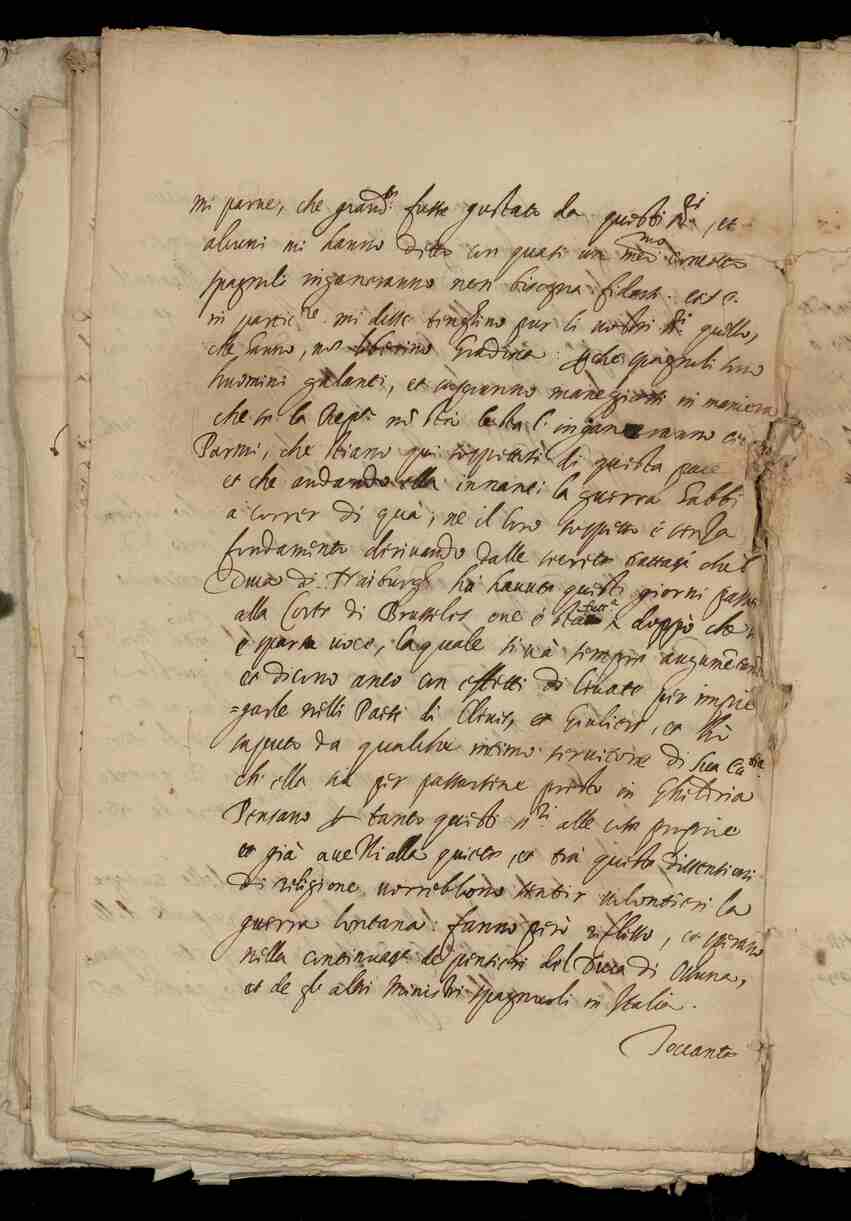 mi parve, che grand.te fusse gustato da questi S.ri, et
alcuni mi hanno ditto con quasi un med.mo concetto
spagnoli inganeranno non bisogna fidarsi. et
in partic.re mi disse tenghino pur li vostri S.ri quello,
che hanno, non liberino Gradisca: che spagnoli sono
huomini galanti, et sapranno maneggiarsi in maniera
che se la Rep.ca nõ stà lesta l'inganeranno
Parmi, che stiano qui sospettosi di questa pace
et che andando ella innanti la guerra habbi
à correr di quà; ne il loro sospetto è senza
fondamento dirivando dalle secrete trattat.i che 'l
Duca di Naiburgh hà havuto questi giorni passati
alla Corte di Brusseles ove è stato, et doppò che
è sparsa voce, la quale si và sempre augumẽtando
et dicono anco con effetti di levate per impie
=garle nelli Paesi di Cleves, et Giuliers, et hò
saputo da qualche intimo servitore di sua
ch'ella sia per passarsene presto in Ghilderia
Pensano per tanto questi S.ri alle cose proprie
et già avezzi alla quiete, et trà queste dissentioni
di religione vorrebbono sentir volontieri la
guerra lontana: fanno però riflesso, et sperano
nella continuat.e de pensieri del Duca di Ossuna,
et de gli altri Ministri spagnuoli in Italia.
Toccante